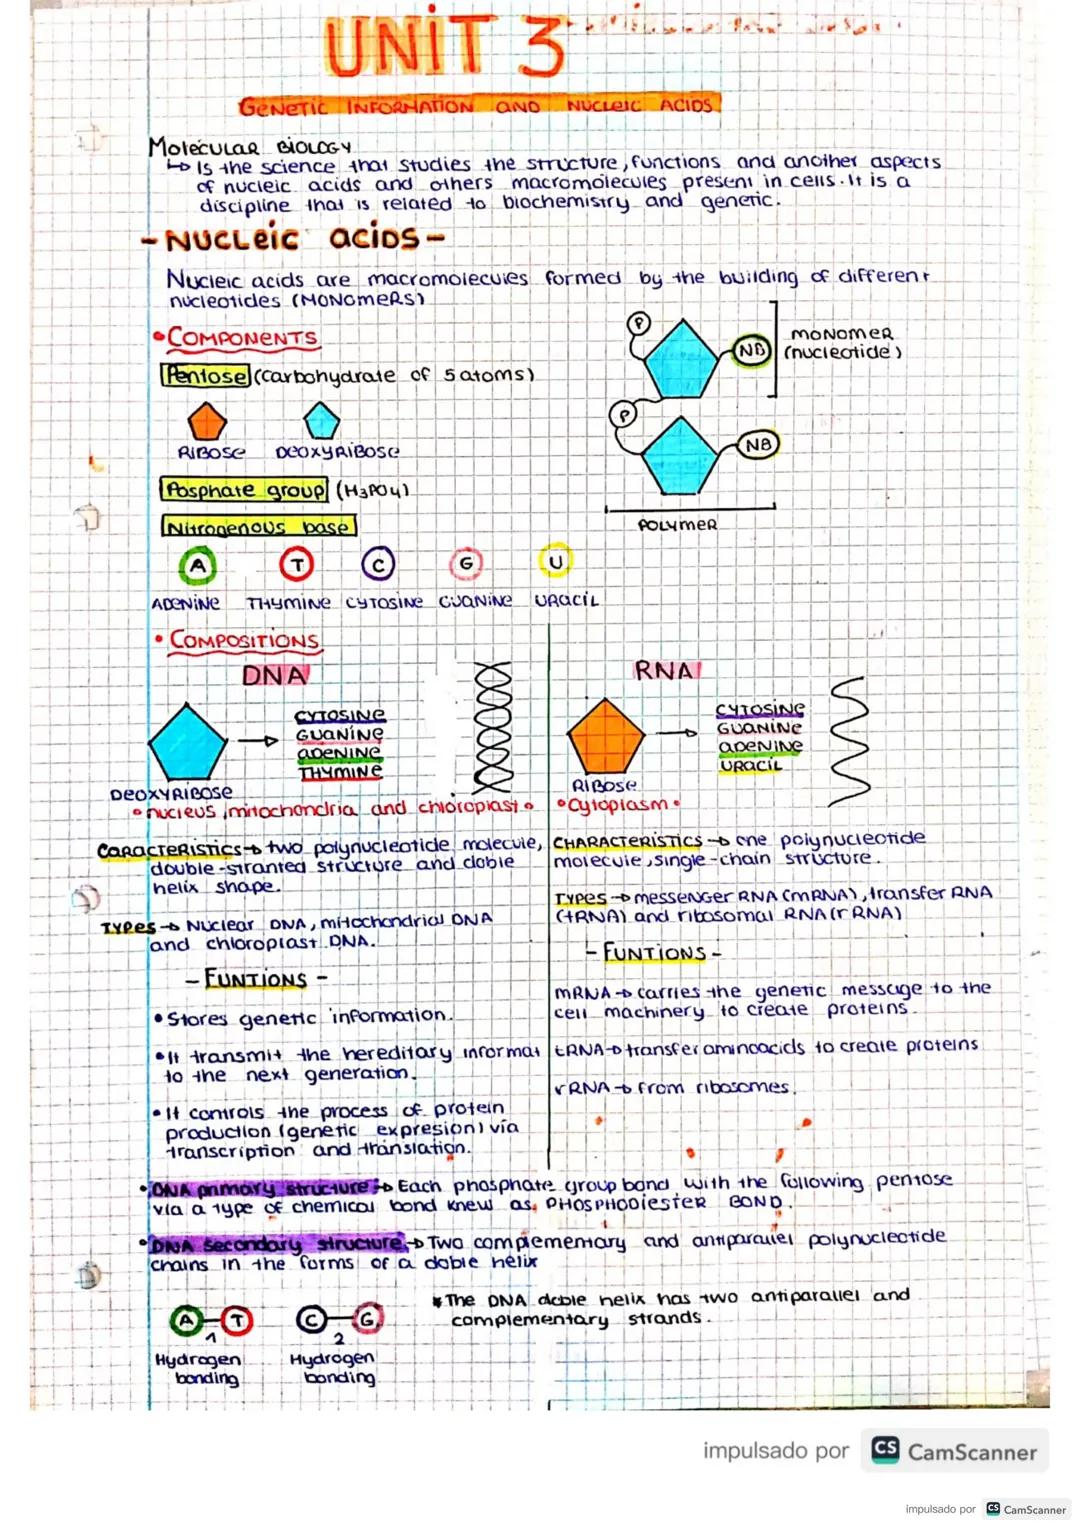 UNIT 3
GENETIC INFORMATION AND NUCLEIC ACIDS
MOLECULAR BIOLOGY
↳ Is the science that studies the structure, functions and another aspects
of nucleic acids and others macromolecules present in cells. It is a
discipline that is related to biochemistry and genetic.
- NUCLEIC ACIDS -
Nucleic acids are macromolecules formed by the building of different
nucleotides (MONOMERS)
• COMPONENTS
Pentose (carbohydrate of 5 atoms)
RIBOSE DEOXYRIBOSE
P NB MONOMER
(nucleotide)
P NB
POLYMER
Posphate group (H3PO4)
Nitrogenous base
A T C G U
ADENINE THYMINE CYTOSINE GUANINE URACIL
• COMPOSITIONS
DNA
CYTOSINE
GUANINE
ADENINE
THYMINE
DEOXYRIBOSE
• nucleus, mitochondria and chloroplast •
CARACTERISTICS → two polynucleotide molecule,
double-stranted structure and doble
helix shape.
TYPES → Nuclear DNA, mitochondrial DNA
and chloroplast DNA.
- FUNTIONS -
• Stores genetic information.
• It transmit the hereditary informat
to the next generation.
• It controls the process of protein
production (genetic expresion) via
transcription and translation.
RNA
CYTOSINE
GUANINE
ADENINE
URACIL
RIBOSE
• Cytoplasm •
CHARACTERISTICS → one polynucleotide
molecule, single-chain structure.
TYPES → messenger RNA (mRNA), transfer RNA
(tRNA) and ribosomal RNA (rRNA)
- FUNTIONS -
mRNA → carries the genetic message to the
cell machinery to create proteins.
tRNA → transfer aminoacids to create proteins
rRNA → from ribosomes.
• DNA primary structure → Each phosphate group bond with the following pentose
via a type of chemical bond knew as PHOSPHODIESTER BOND.
• DNA secondary structure → Two complementary and antiparallel polynucleotide
chains in the forms of a doble helix
A T C G
1 2
Hydrogen Hydrogen
bonding bonding
* The DNA doble helix has two antiparallel and
complementary strands.
impulsado por CS CamScanner
impulsado por CS CamScanner